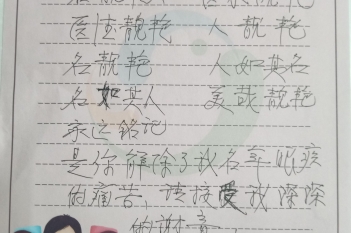 医德靓艳 人靓艳
名靓艳 人如其名
名如其人 美哉靓艳
永远铭记
是你解除了我多年眼疾
的痛苦，请接受我深深
的谢意，